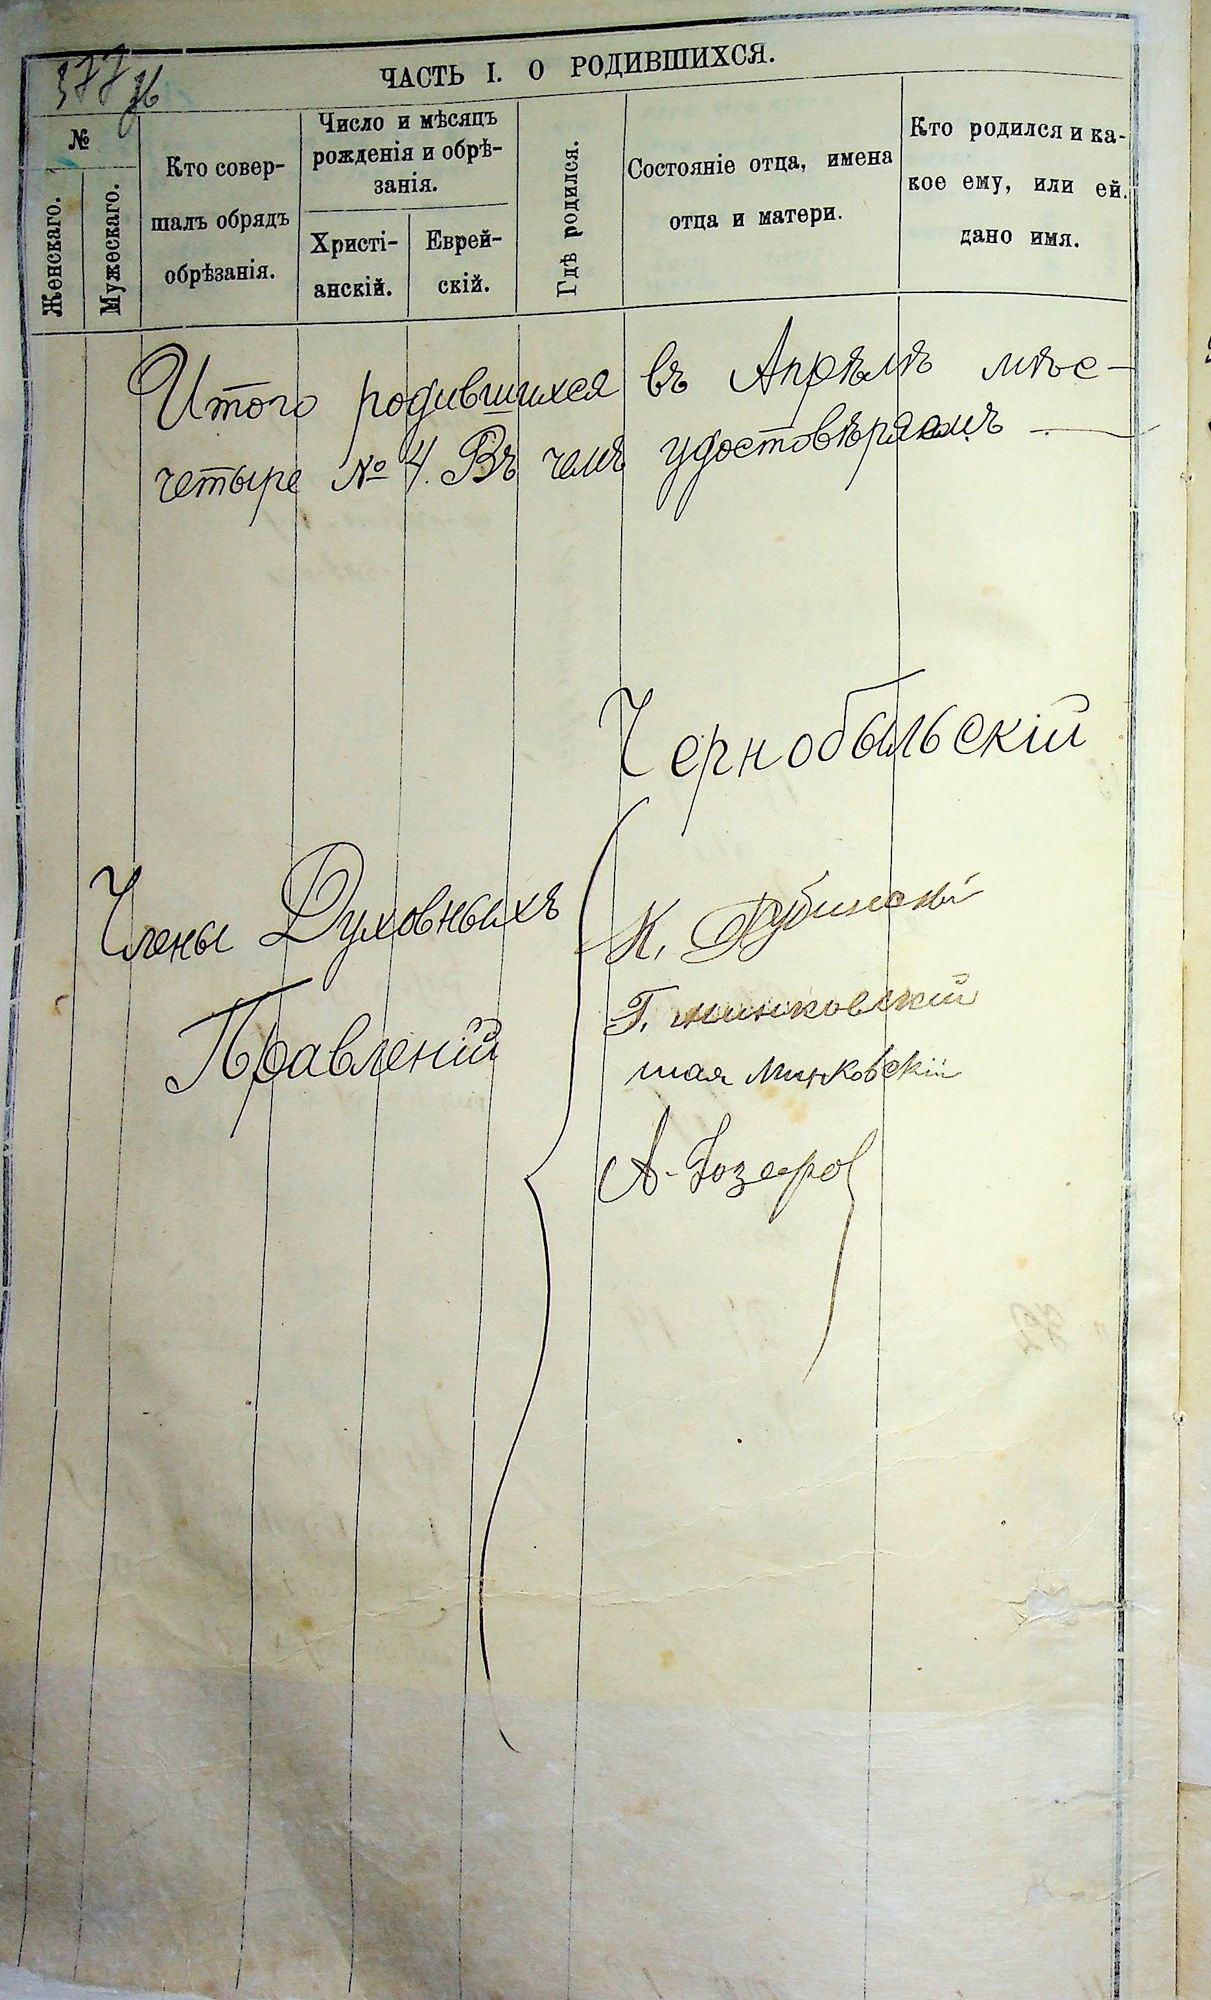 377 об
ЧАСТЬ I. О РОДИВШИХСЯ.
№
Женскаго.
Мужескаго.
Кто совер-
шалъ обрядъ
обрѣзанія.
Число и мѣсяцъ
рожденія и обрѣ-
занія.
Христі-
анскій.
Еврей-
скій.
Гдѣ родился.
Состояніе отца, имена
отца и матери.
Кто родился и ка-
кое ему, или ей.
дано имя.
Итого родившихся въ Апрѣлѣ мѣс-
четыре № 4. Въ чемъ удостовѣряемъ
Чернобыльскій
Члены Духовныхъ
Правленій
К. Рубинскій
Г. Минковскій
шая Минковскій
А.